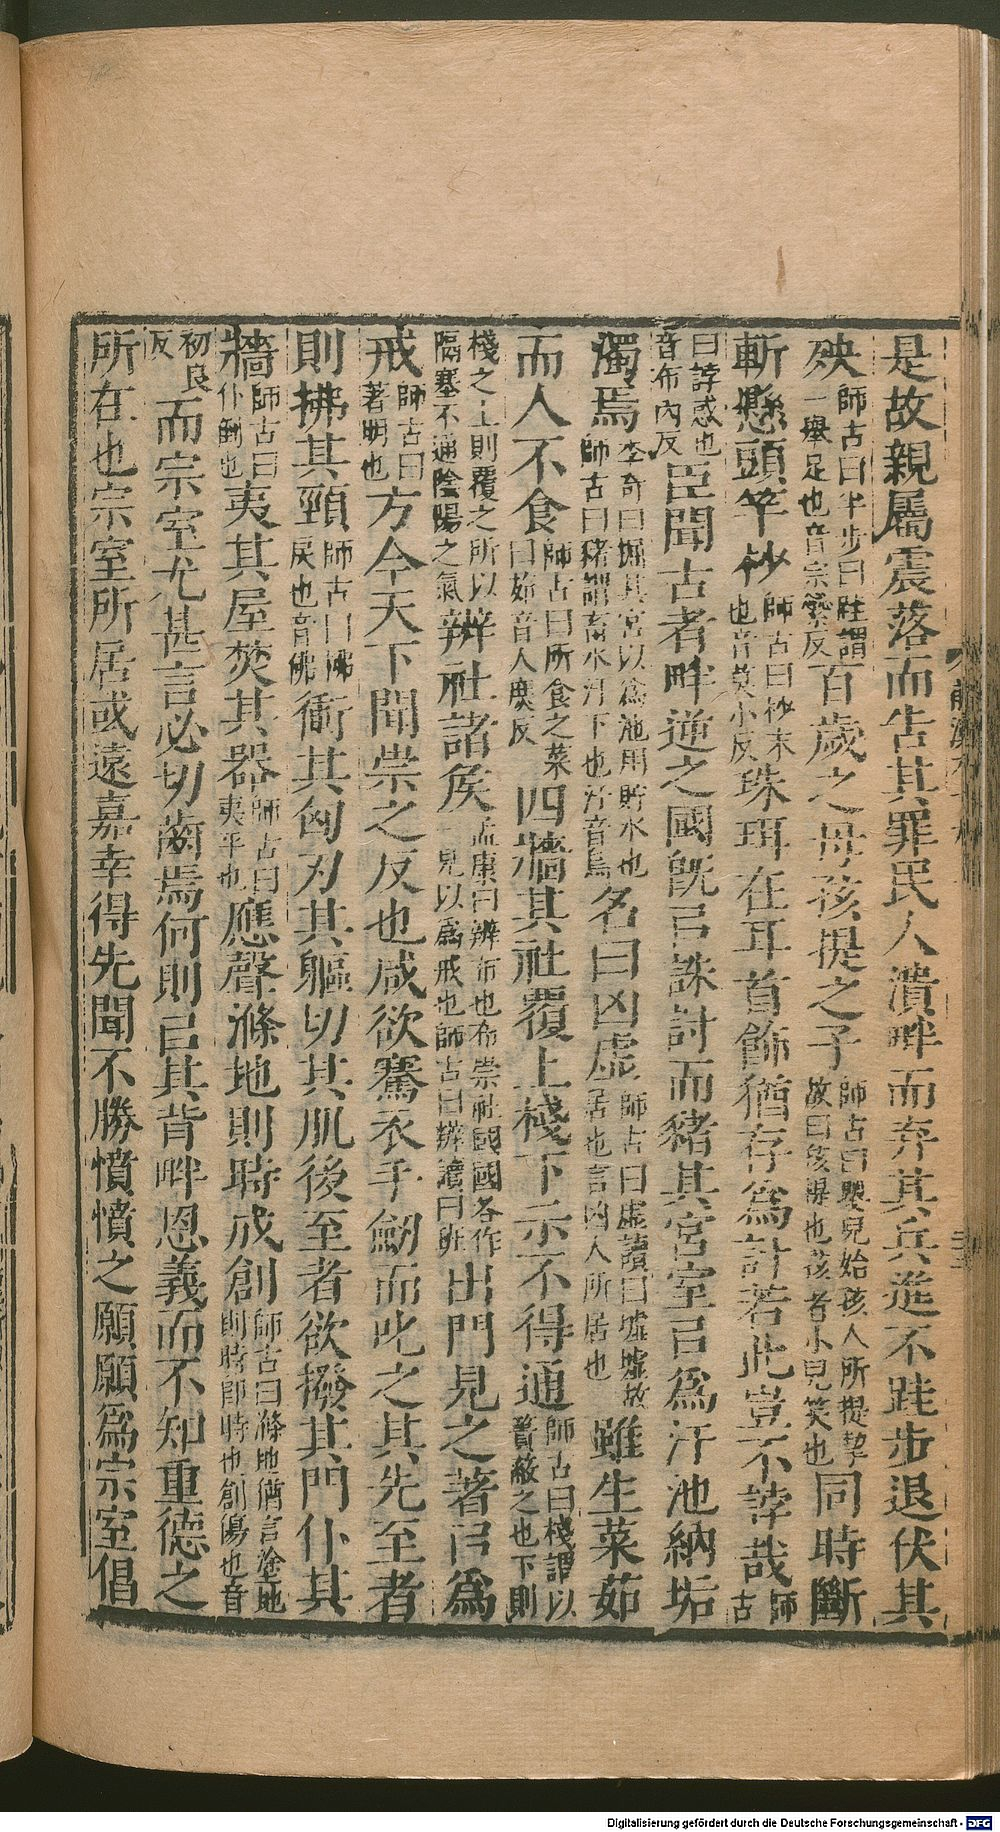 是故親屬震落而告其罪民人潰畔而弃其兵進不跬步退伏其
殃師古曰半步曰跬謂一舉足也音宗橤反百歲之母孩提之子師古曰嬰兒始孩人所提挈故曰孩提也孩者小兒笑也同時斷
斬懸頭竿杪師古曰杪末也音莫小反珠珥在耳首飾猶存爲計若此豈不誖哉師古
曰誖惑也音布內反臣聞古者畔逆之國旣㠯誅討而豬其宮室㠯爲汙池納垢
濁焉李奇曰掘其宮以爲池用貯水也師古曰豬謂畜水汙下也汙音烏名曰凶虛師古曰虛讀曰墟墟故居也言凶人所居也雖生菜茹
而人不食師古曰所食之菜曰茹音人庶反四牆其社覆上棧下示不得通師古曰棧謂以簀蔽之也下則
棧之上則覆之所以隔塞不通陰陽之氣辨社諸矦孟康曰辨布也布崇社國國各作一見以爲戒也師古曰辨讀曰班出門見之著㠯爲
戒師古曰著明也方今天下聞崇之反也咸欲騫衣手劒而叱之其先至者
則拂其頸師古曰拂戾也音佛衝其匈刃其軀切其肌後至者欲撥其門仆其
牆師古曰仆倒也夷其屋焚其器師古曰夷平也應聲滌地則時成創師古曰滌地猶言塗地則時卽時也創傷也音
初良反而宗室尤甚言必切齒焉何則㠯其背畔恩義而不知重德之
所在也宗室所居或遠嘉幸得先聞不勝憤憤之願願爲宗室倡
Digitalisierung gefördert durch die Deutsche Forschungsgemeinschaft - DFG